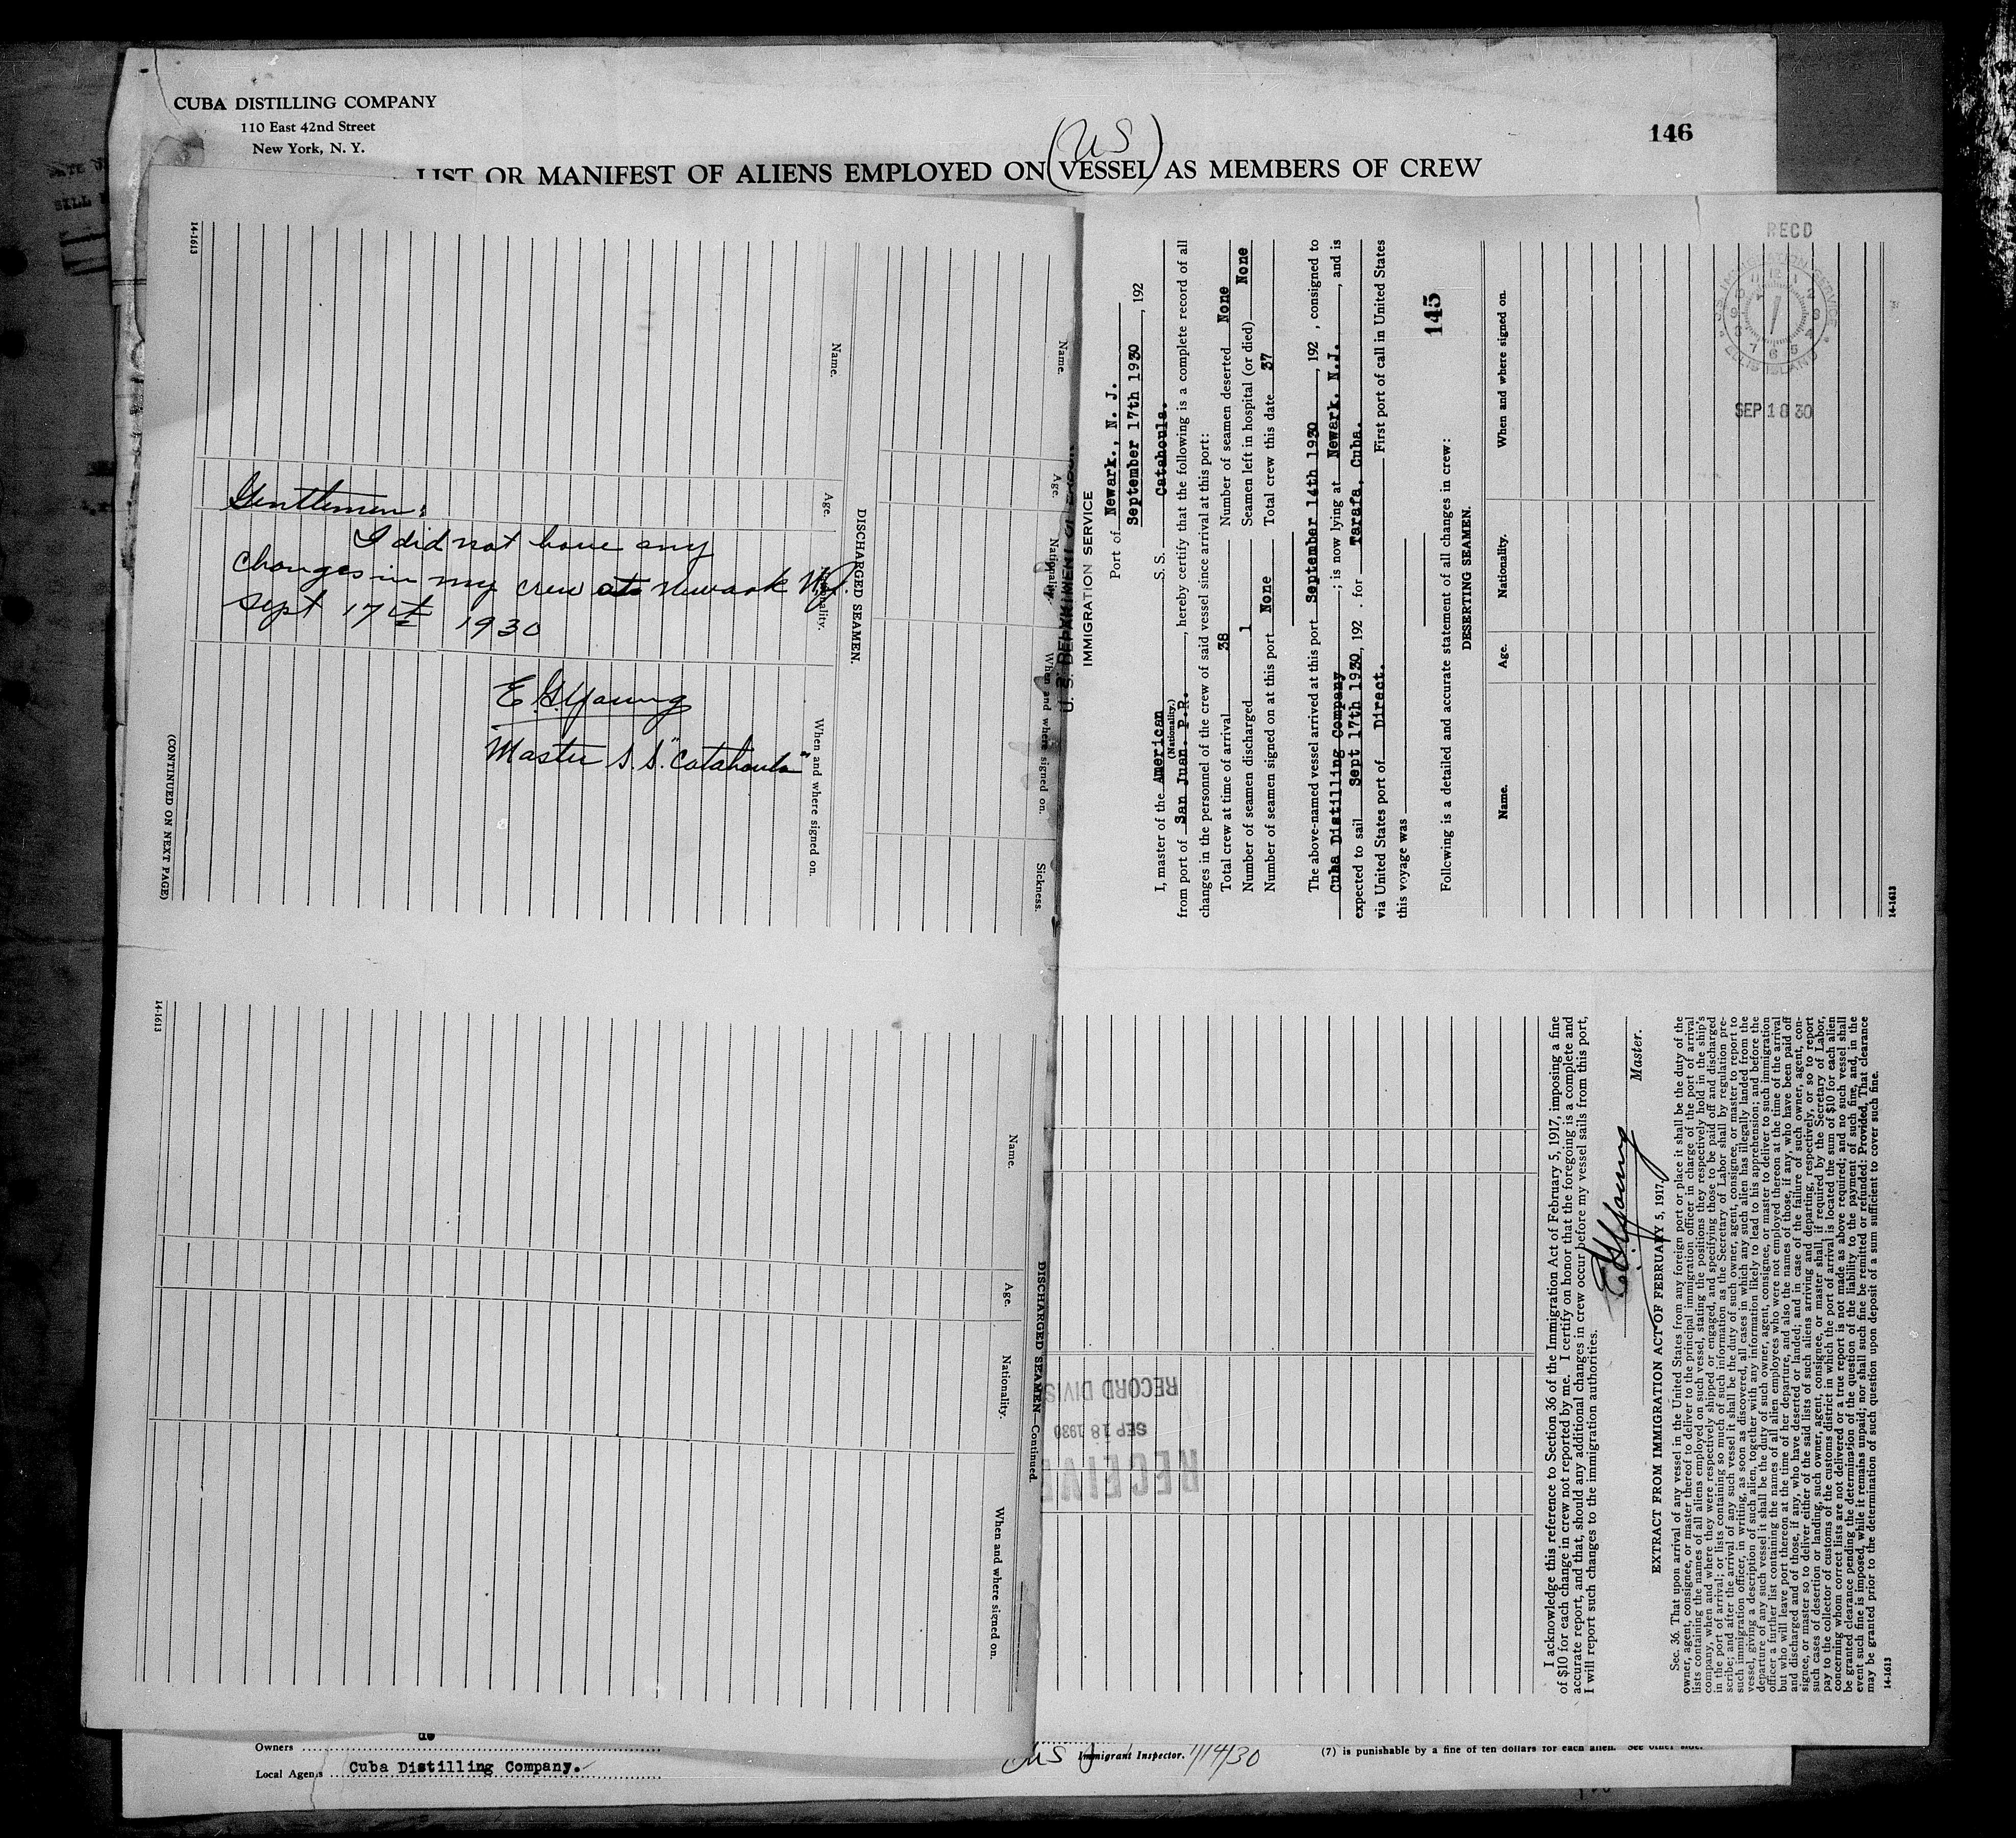 CUBA DISTILLING COMPANY
110 East 42nd Street
New York, N. Y.
146
(US)
LIST OR MANIFEST OF ALIENS EMPLOYED ON (VESSEL) AS MEMBERS OF CREW
14-1613
Name. Age. Nationality. When and where signed on. Sickness.
DISCHARGED SEAMEN.
Name. Age. Nationality. When and where signed on.
Gentlemen:
I did not have any
changes in my crew at Newark N.J.
Sept 17th 1930
E. G. Young
Master S.S. "Catahoula"
(CONTINUED ON NEXT PAGE)
14-1613
DISCHARGED SEAMEN—Continued.
Name. Age. Nationality. When and where signed on.
U. S. DEPARTMENT OF LABOR
IMMIGRATION SERVICE
Port of Newark., N. J.
September 17th 1930, 192
I, master of the American S. S. Catahoula.
(Nationality.)
from port of San Juan. P.R., hereby certify that the following is a complete record of all
changes in the personnel of the crew of said vessel since arrival at this port:
Total crew at time of arrival 38 Number of seamen deserted None
Number of seamen discharged 1 Seamen left in hospital (or died) None
Number of seamen signed on at this port None Total crew this date 37
The above-named vessel arrived at this port September 14th 1930, 192 , consigned to
Cuba Distilling Company; is now lying at Newark. N.J., and is
expected to sail Sept 17th 1930, 192 . for Tarafa, Cuba.
via United States port of Direct. First port of call in United States
this voyage was
145
Following is a detailed and accurate statement of all changes in crew:
DESERTING SEAMEN.
Name. Age. Nationality. When and where signed on.
RECD
U.S. IMMIGRATION SERVICE
ELLIS ISLAND
SEP 18 30
14-1613
RECORD DIVIS
SEP 18 1930
RECEIVE
I acknowledge this reference to Section 36 of the Immigration Act of February 5, 1917, imposing a fine
of $10 for each change in crew not reported by me. I certify on honor that the foregoing is a complete and
accurate report, and that, should any additional changes in crew occur before my vessel sails from this port,
I will report such changes to the immigration authorities.
E. G. Young
Master.
EXTRACT FROM IMMIGRATION ACT OF FEBRUARY 5, 1917.
Sec. 36. That upon arrival of any vessel in the United States from any foreign port or place it shall be the duty of the
owner, agent, consignee, or master thereof to deliver to the principal immigration officer in charge of the port of arrival
lists containing the names of all aliens employed on such vessel, stating the positions they respectively hold in the ship's
company, when and where they were respectively shipped or engaged, and specifying those to be paid off and discharged
in the port of arrival; or lists containing so much of such information as the Secretary of Labor shall by regulation pre-
scribe; and after the arrival of any such vessel it shall be the duty of such owner, agent, consignee, or master to report to
such immigration officer, in writing, as soon as discovered, all cases in which any such alien has illegally landed from the
vessel, giving a description of such alien, together with any information likely to lead to his apprehension; and before the
departure of any such vessel it shall be the duty of such owner, agent, consignee, or master to deliver to such immigration
officer a further list containing the names of all alien employees who were not employed thereon at the time of the arrival
but who will leave port thereon at the time of her departure, and also the names of those, if any, who have been paid off
and discharged and of those, if any, who have deserted or landed; and in case of the failure of such owner, agent, con-
signee, or master so to deliver either of the said lists of such aliens arriving and departing, respectively, or so to report
such cases of desertion or landing, such owner, agent, consignee, or master shall, if required by the Secretary of Labor,
pay to the collector of customs of the customs district in which the port of arrival is located the sum of $10 for each alien
concerning whom correct lists are not delivered or a true report is not made as above required; and no such vessel shall
be granted clearance pending the determination of the question of the liability to the payment of such fine, and, in the
event such fine is imposed, while it remains unpaid; nor shall such fine be remitted or refunded: Provided, That clearance
may be granted prior to the determination of such question upon deposit of a sum sufficient to cover such fine.
14-1613
Owners do
Local Agents Cuba Distilling Company.
Immigrant Inspector.
(7) is punishable by a fine of ten dollars for each alien. See other side.